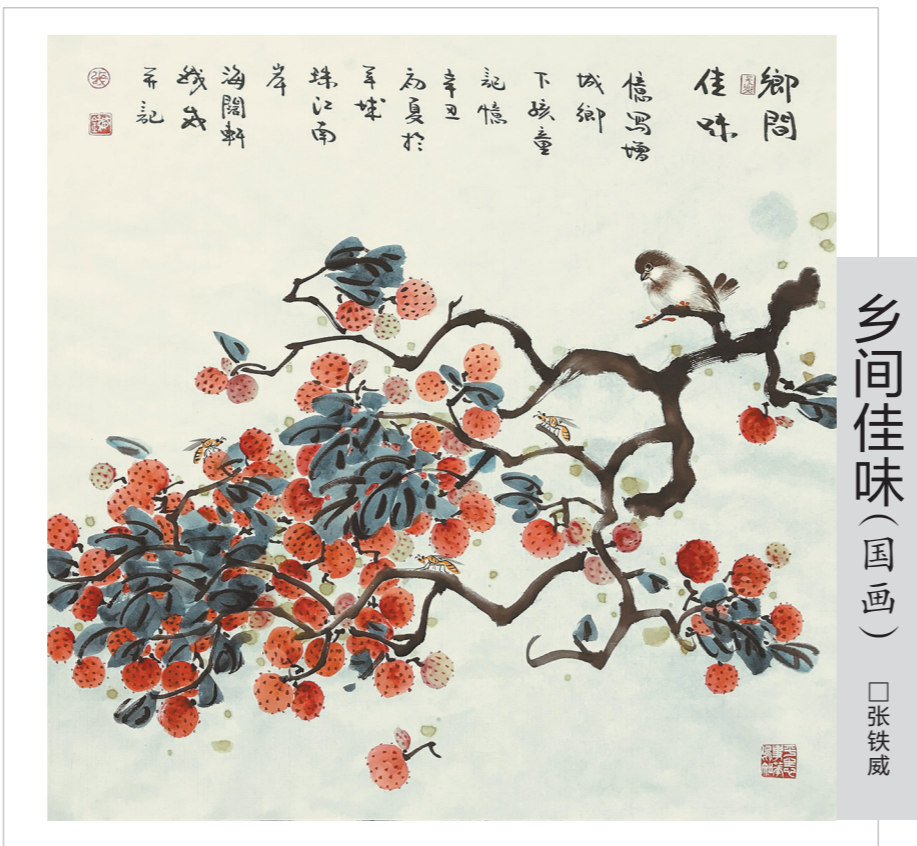 鄉間
佳味
憶寫增
城鄉
下孩童
記憶
辛丑
初夏於
羊城
珠江南
岸
海闊軒
鐵威
并記
乡间佳味(国画)
□张铁威